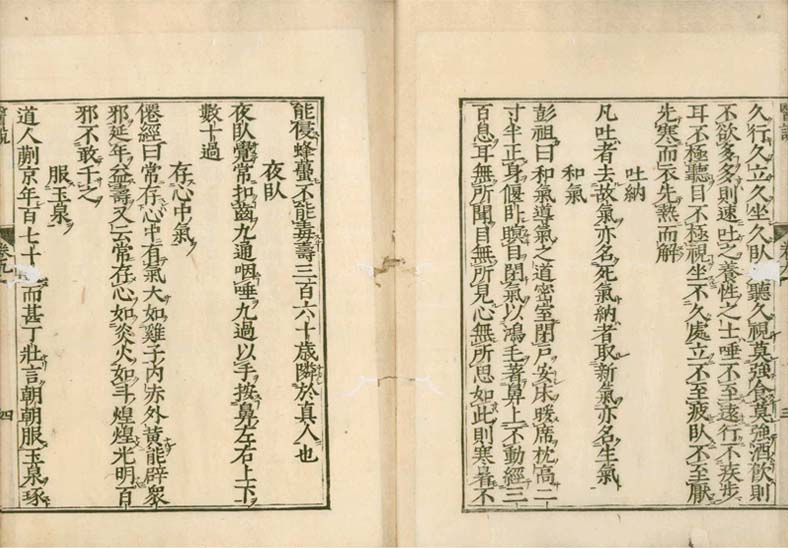 醫說
久行久立久坐久臥聽久視莫強食莫強酒飲則
不欲多多則速吐之養性之士唾不至遠行不疾步
耳不極聽目不極視坐不久處立不至疲臥不至厭
先寒而衣先熱而解
吐納
凡吐者去故氣亦名死氣納者取新氣亦名生氣
和氣
彭祖曰和氣導氣之道密室閉戶安床暖席枕高二
寸半正身偃臥瞑目閉氣以鴻毛著鼻上不動經三
百息耳無所聞目無所見心無所思如此則寒暑不
卷九
三
能侵蜂蠆不能毒壽三百六十歲隣於真人也
夜臥
夜臥覺常扣齒九通咽唾九過以手按鼻左右上下
數十過
存心中氣
僊經曰常存心中有氣大如雞子內赤外黃能辟眾
邪延年益壽又云常存心如炎火如斗煌煌光明百
邪不敢干之
服玉泉
道人蒯京年百七十而甚丁壯言朝朝服玉泉琢
醫說
卷九
四